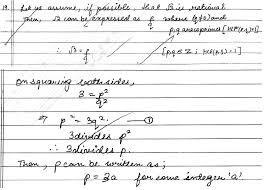 19. Let us assume, if possible, that √3 is rational
Then, √3 can be expressed as p/q where (q≠0) and
p,q are coprimes [HCF(p,q)=1]
∴ √3 = p/q [p,q ∈ Z ; HCF(p,q)=1]
On squaring both sides,
3 = p²/q²
⇒ p² = 3q² — ①
3 divides p²
∴ 3 divides p.
Then, p can be written as;
p = 3a for some integer 'a'